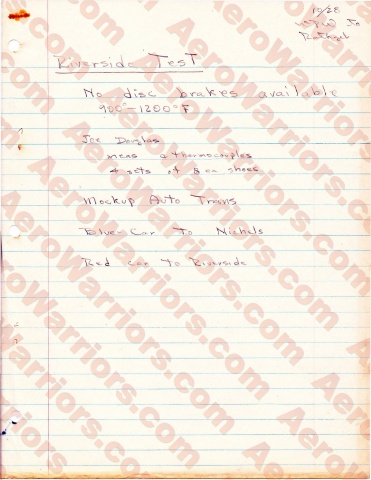 10/28
Riverside Test
No disc brakes available
900°-1200°F
Joe Douglas
means a thermocouples
4 sets of 8 on shoes
Mockup Auto Trans
Blue-Car To Nichels
Red car to Riverside
AeroWarriors.com